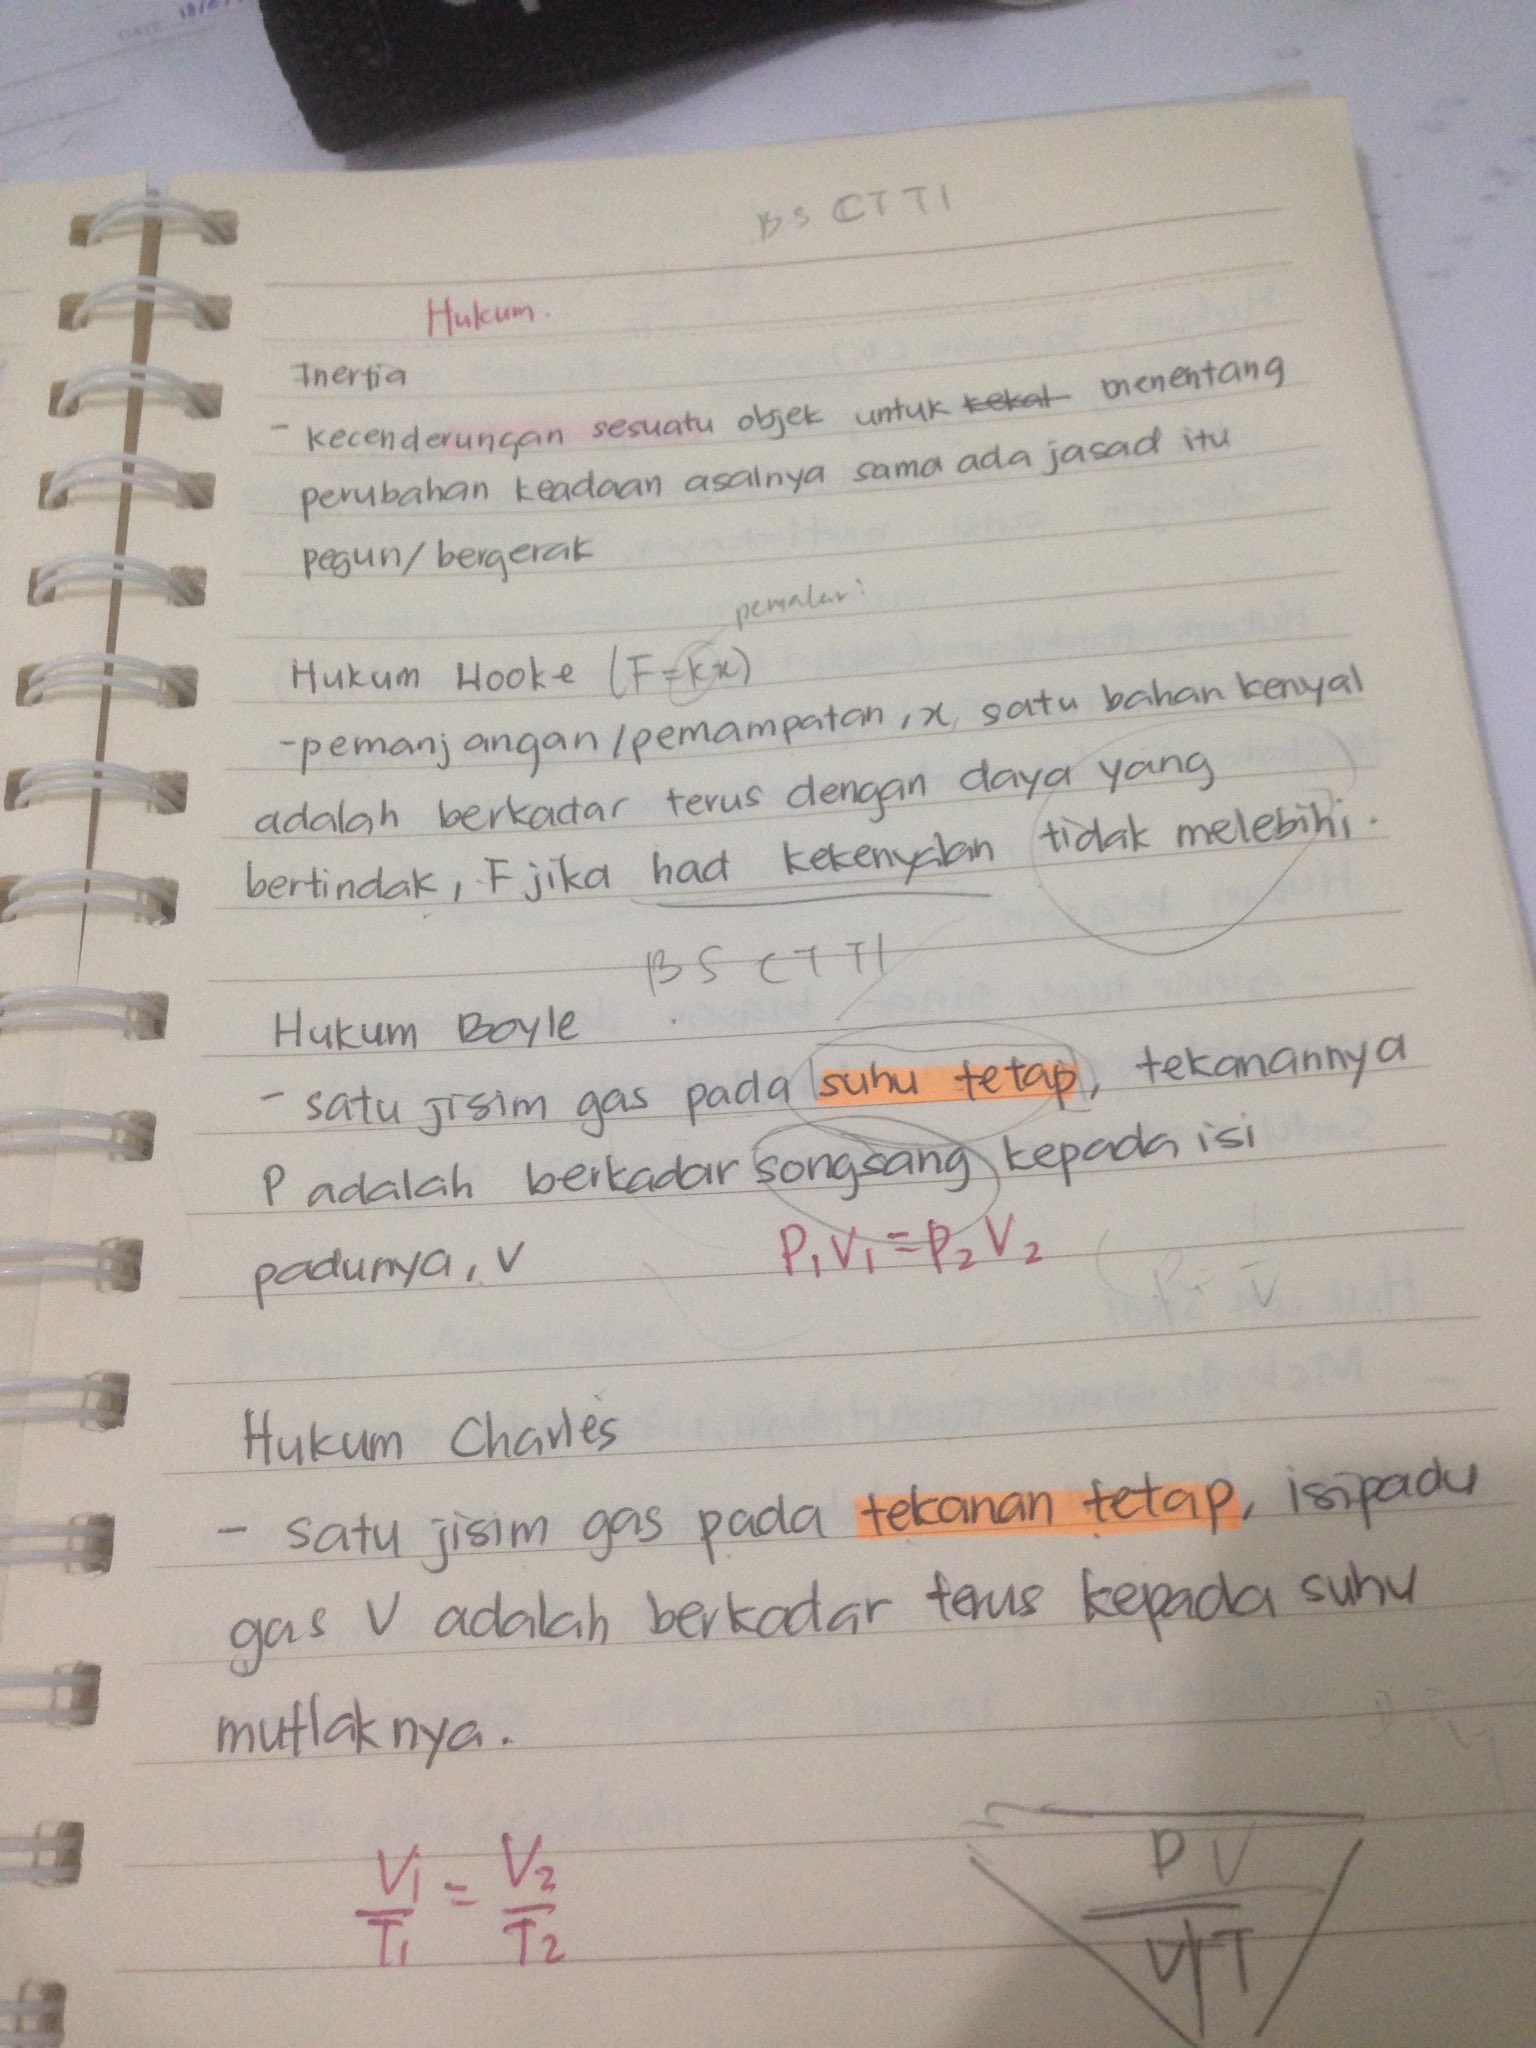 BS CTTI
Hukum.
Inertia
- kecenderungan sesuatu objek untuk kekal menentang
perubahan keadaan asalnya sama ada jasad itu
pegun/bergerak
pemalar.
Hukum Hooke (F=kx)
-pemanjangan/pemampatan, x, satu bahan kenyal
adalah berkadar terus dengan daya yang
bertindak, F jika had kekenyalan tidak melebihi.
BS CTTI
Hukum Boyle
- satu jisim gas pada suhu tetap, tekanannya
P adalah berkadar songsang kepada isi
padunya, V P₁V₁=P₂V₂
Hukum Charles
- satu jisim gas pada tekanan tetap, isipadu
gas V adalah berkadar terus kepada suhu
mutlaknya.
V₁/T₁ = V₂/T₂
PV
T